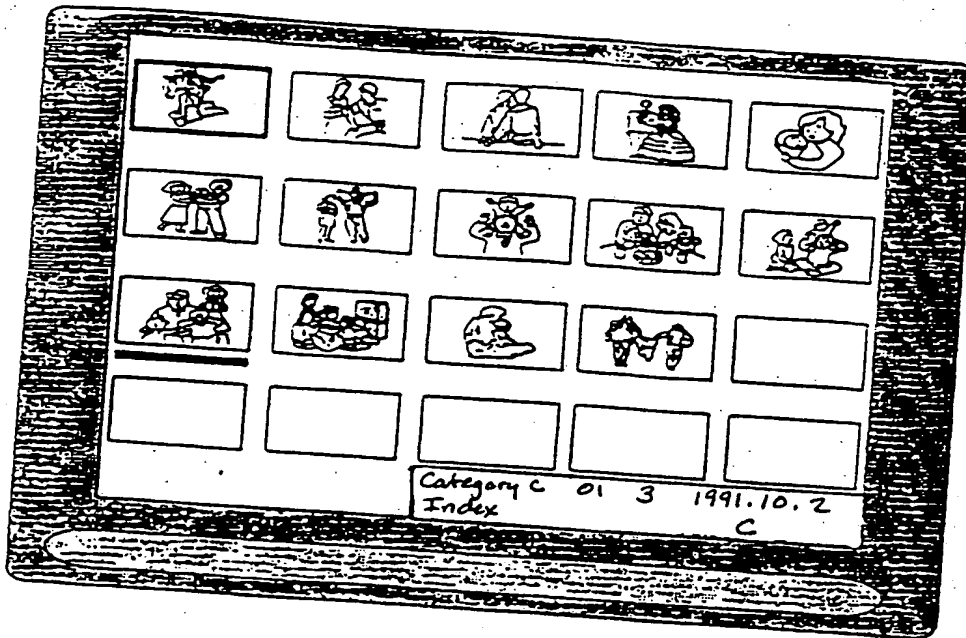 Category C 01 3 1991.10.2
Index C